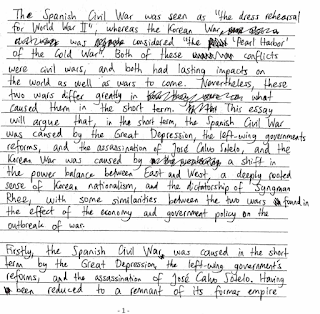 The Spanish Civil War was seen as "the dress rehearsal
for World War II", whereas the Korean War
was considered "the 'Pearl Harbor'
of the Cold War". Both of these conflicts
were civil wars, and both had lasting impacts on
the world as well as wars to come. Nevertheless, these
two wars differ greatly in what
caused them in the short term. This essay
will argue that, in the short term, the Spanish Civil War
was caused by the Great Depression, the left-wing governments
reforms, and the assassination of José Calvo Sotelo, and the
Korean War was caused by a shift in
the power balance between East and West, a deeply rooted
sense of Korean nationalism, and the dictatorship of Syngman
Rhee, with some similarities between the two wars found in
the effect of the economy and government policy on the
outbreak of war.
Firstly, the Spanish Civil War was caused in the short
term by the Great Depression, the left-wing government's
reforms, and the assassination of José Calvo Sotelo. Having
been reduced to a remnant of its former empire
- 1 -